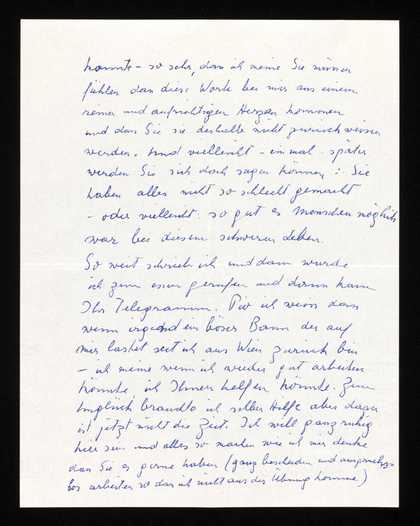 konnte – so sehr, dass ich meine Sie müssen
fühlen dass diese Worte bei mir aus einem
reinen und aufrichtigen Herzen kommen
und dass Sie sie deshalb nicht zurückweisen
werden. Und vielleicht – einmal – später
werden Sie sich doch sagen können: Sie
haben alles nicht so schlecht gemacht
– oder vielleicht: so gut es Menschen möglich
war bei diesem schweren Leben.
So weit schrieb ich und dann wurde
ich zum essen gerufen und dann kam
Ihr Telegramm. Für ich weiss dass
wenn irgend ein böser Bann der auf
mir lastet seit ich aus Wien zurück bin
– ich meine wenn ich wieder gut arbeiten
könnte ich Ihnen helfen könnte. Zum
Unglück brauchte ich selber Hilfe aber dazu
ist jetzt nicht die Zeit. Ich will ganz ruhig
hier sein und alles so machen wie ich mir denke
dass Sie es gerne haben (ganz bescheiden und anspruchs-
los arbeiten so dass ich nicht aus der Übung komme)